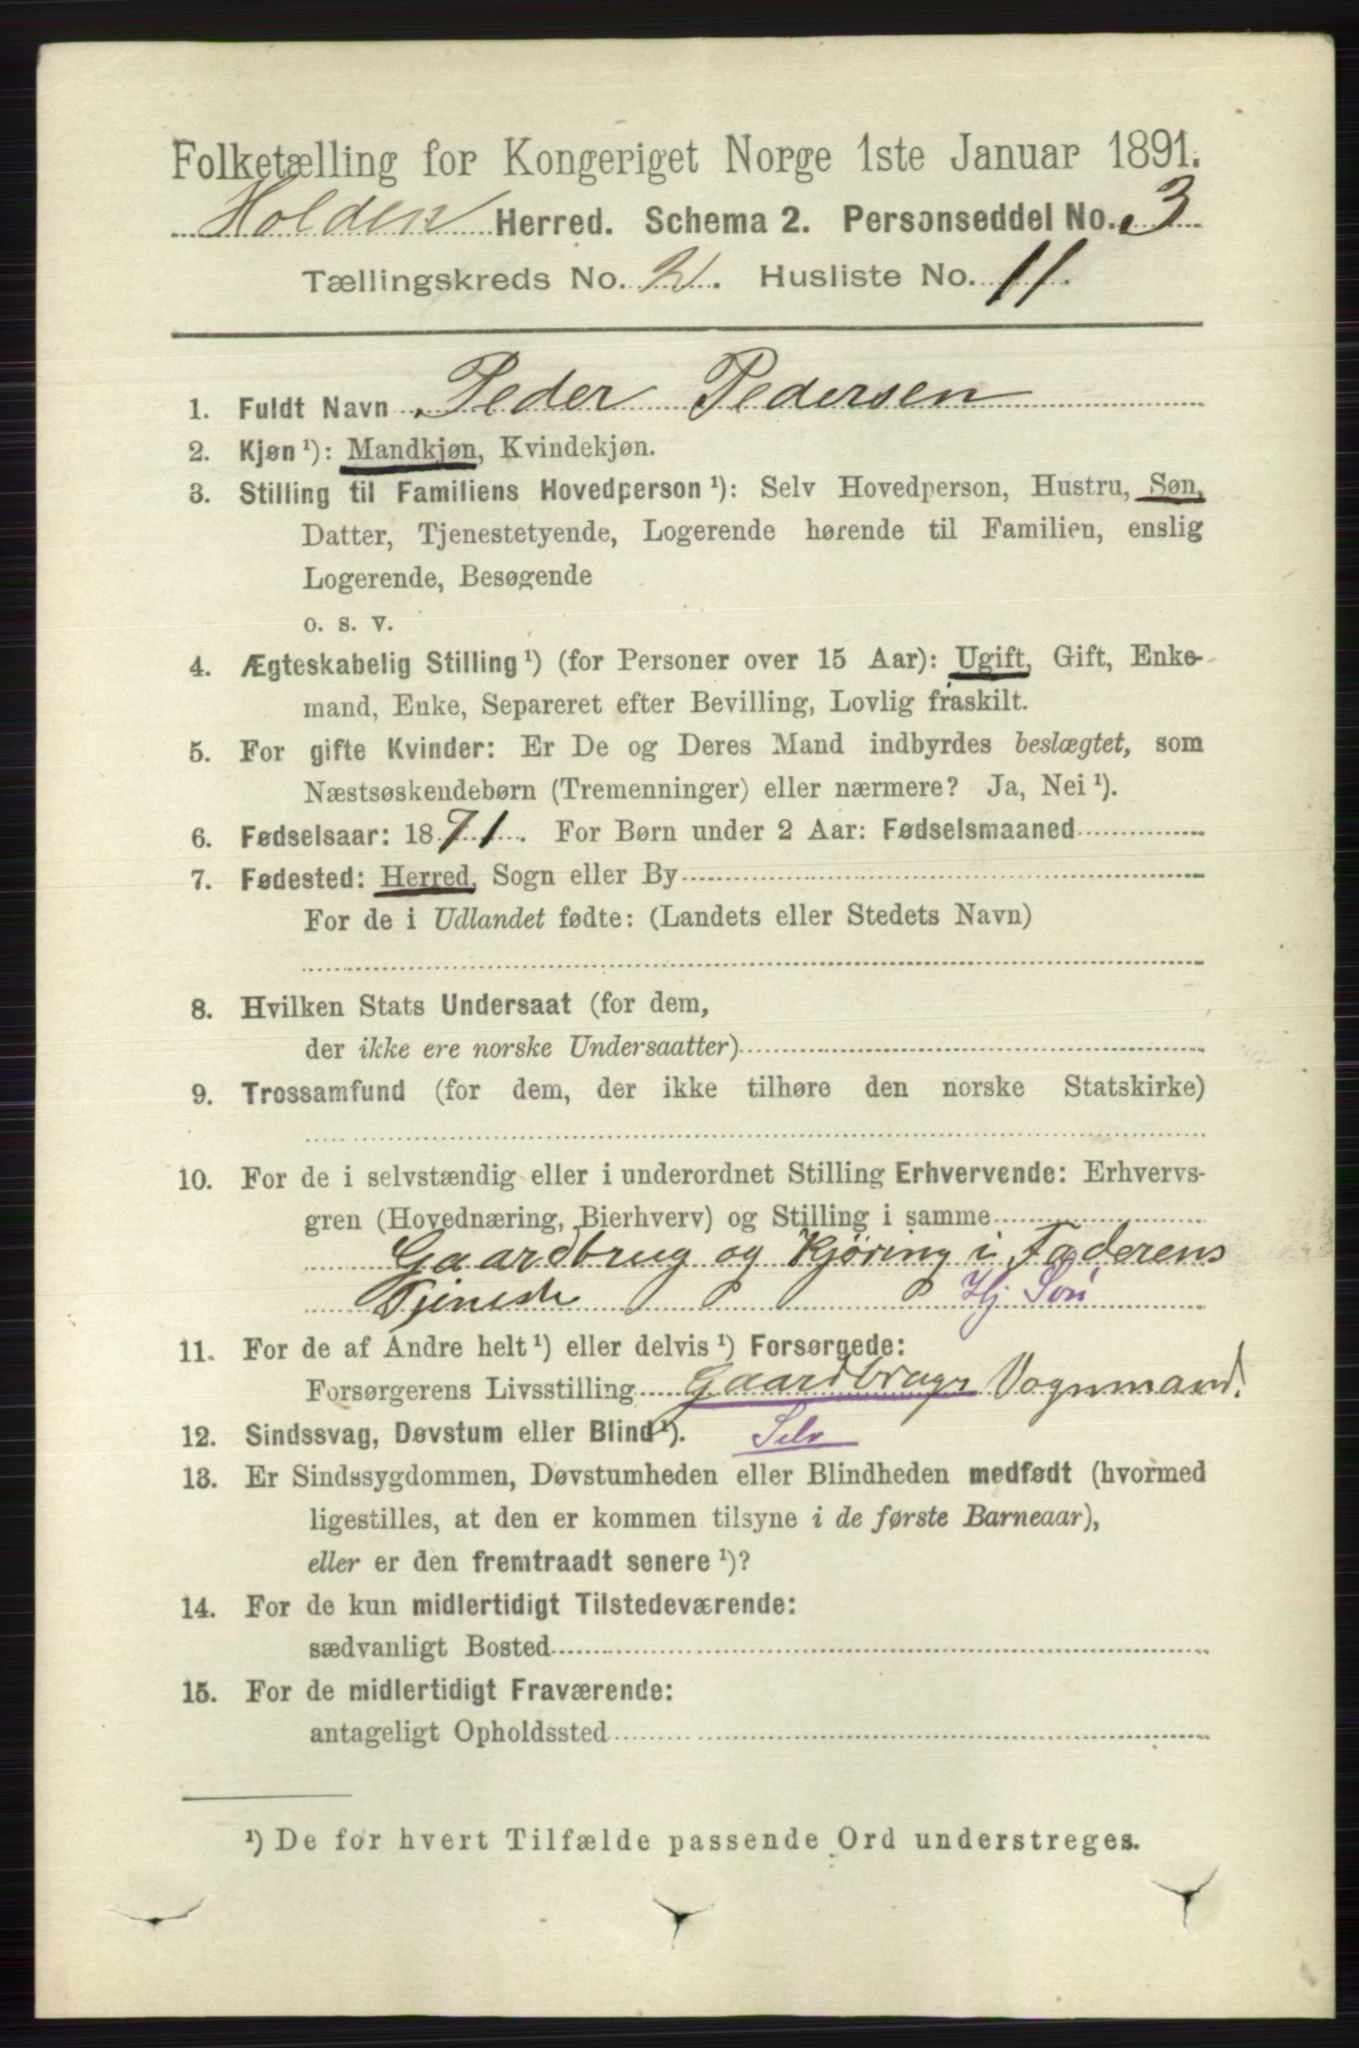 Folketælling for Kongeriget Norge 1ste Januar 1891.
Holden Herred. Schema 2. Personseddel No. 3
Tællingskreds No. 2. Husliste No. 11.
1. Fuldt Navn Peder Pedersen
2. Kjøn ¹): Mandkjøn, Kvindekjøn.
3. Stilling til Familiens Hovedperson ¹): Selv Hovedperson, Hustru, Søn,
Datter, Tjenestetyende, Logerende hørende til Familien, enslig
Logerende, Besøgende
o. s. v.
4. Ægteskabelig Stilling ¹) (for Personer over 15 Aar): Ugift, Gift, Enke-
mand, Enke, Separeret efter Bevilling, Lovlig fraskilt.
5. For gifte Kvinder: Er De og Deres Mand indbyrdes beslægtet, som
Næstsøskendebørn (Tremenninger) eller nærmere? Ja, Nei ¹).
6. Fødselsaar: 1871. For Børn under 2 Aar: Fødselsmaaned
7. Fødested: Herred, Sogn eller By
For de i Udlandet fødte: (Landets eller Stedets Navn)
8. Hvilken Stats Undersaat (for dem,
der ikke ere norske Undersaatter)
9. Trossamfund (for dem, der ikke tilhøre den norske Statskirke)
10. For de i selvstændig eller i underordnet Stilling Erhvervende: Erhvervs-
gren (Hovednæring, Bierhverv) og Stilling i samme
Gaardbrug og Kjøring i Faderens
Tjeneste Hj Søn
11. For de af Andre helt ¹) eller delvis ¹) Forsørgede:
Forsørgerens Livsstilling Gaardbruger Vognmand.
12. Sindssvag, Døvstum eller Blind ¹). Selv
13. Er Sindssygdommen, Døvstumheden eller Blindheden medfødt (hvormed
ligestilles, at den er kommen tilsyne i de første Barneaar),
eller er den fremtraadt senere ¹)?
14. For de kun midlertidigt Tilstedeværende:
sædvanligt Bosted
15. For de midlertidigt Fraværende:
antageligt Opholdssted
¹) De for hvert Tilfælde passende Ord understreges.